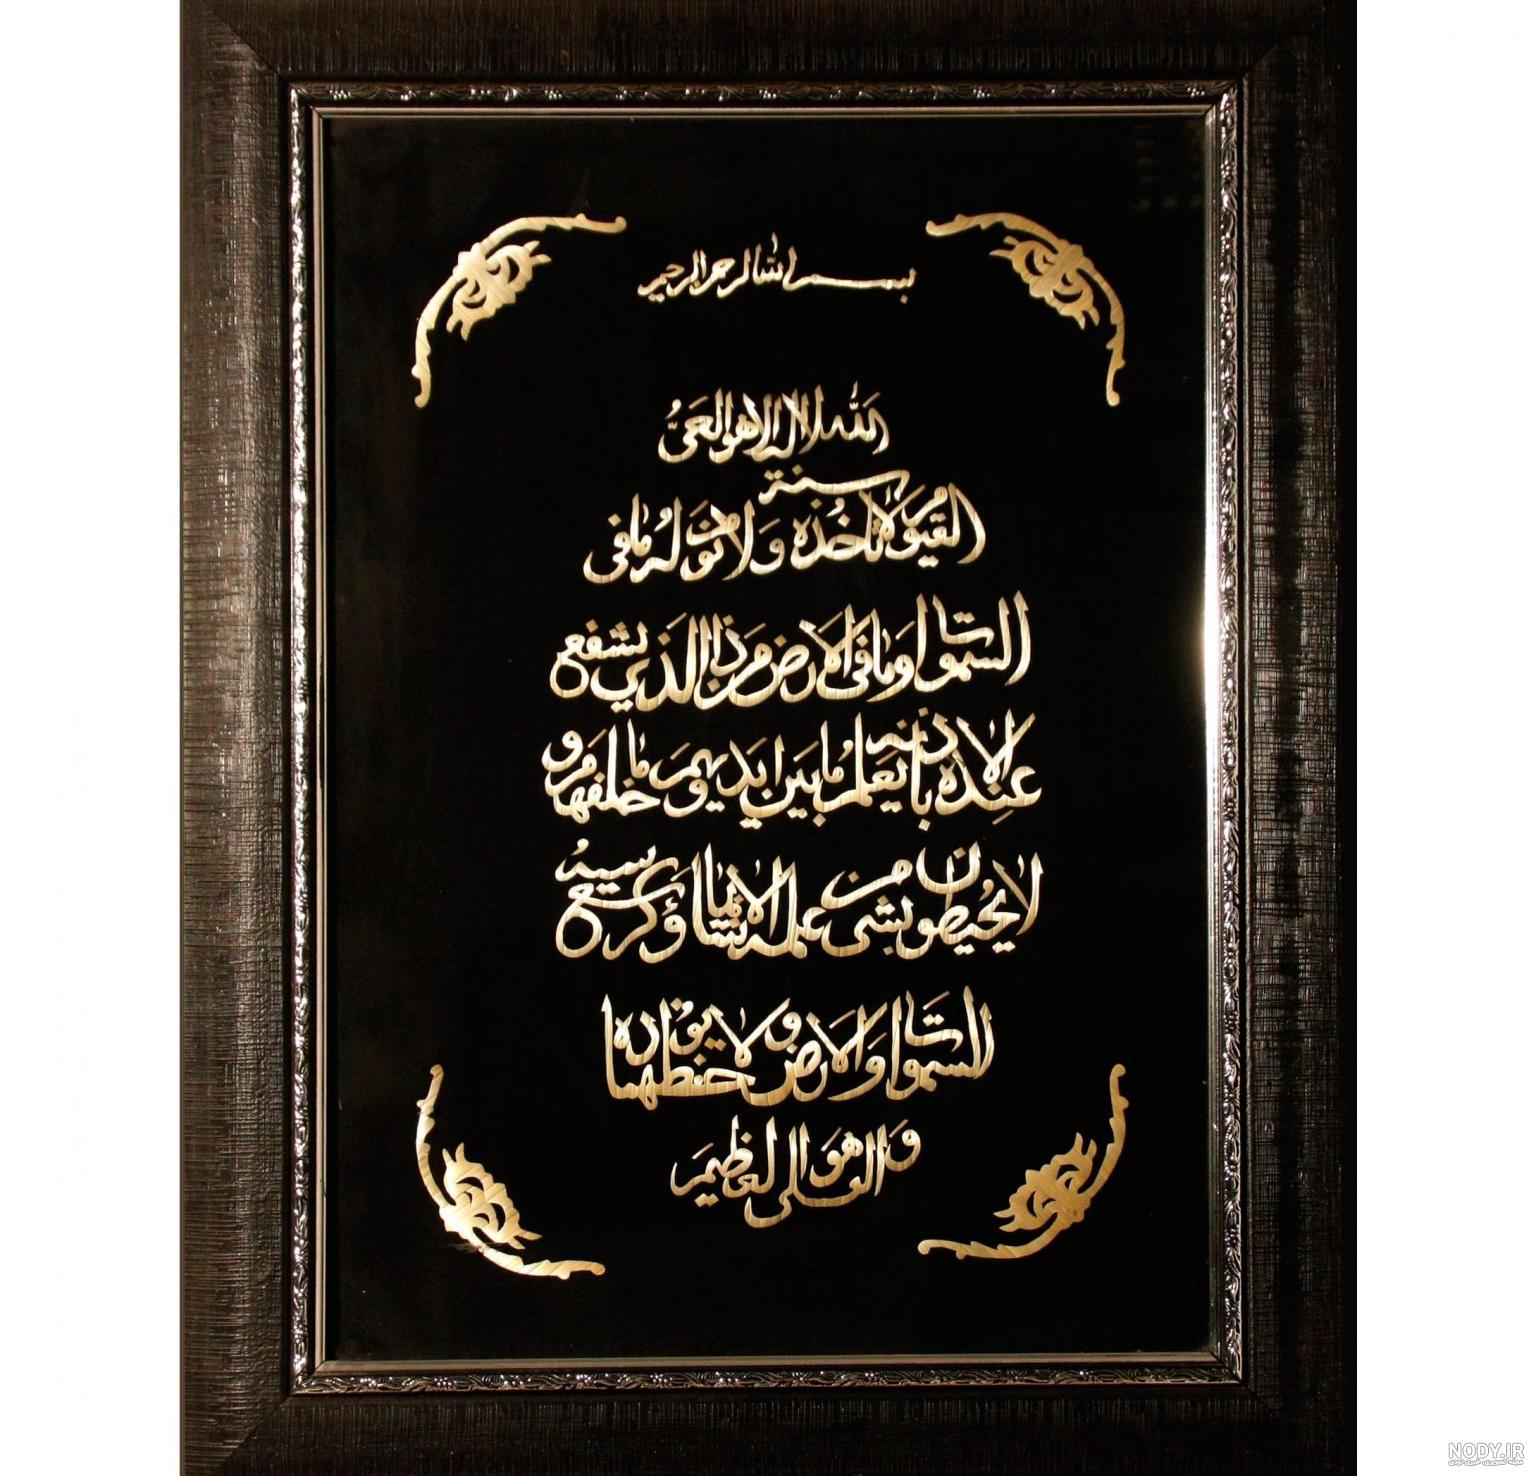 بسم الله الرحمن الرحیم
الله لا اله الا هو الحَیُّ
القَیّوُمُ لا تاخُذه سنة وَلا نوَم لهُ مافی
السَّمٰوات وَمافی الاَرض مَن ذَا الَّذی یشفع
عِندهُ الا باذنه یَعلمُ مابَین ایَدیهِم وَما خلفهم و
لا یُحیطون بشیء من علمه الا بماشاء وَسع کرسیهُ
السَّمٰوات وَالاَرض و لا یؤده حفظهما
وَ هوَ العلی العظیم
NODY.IR